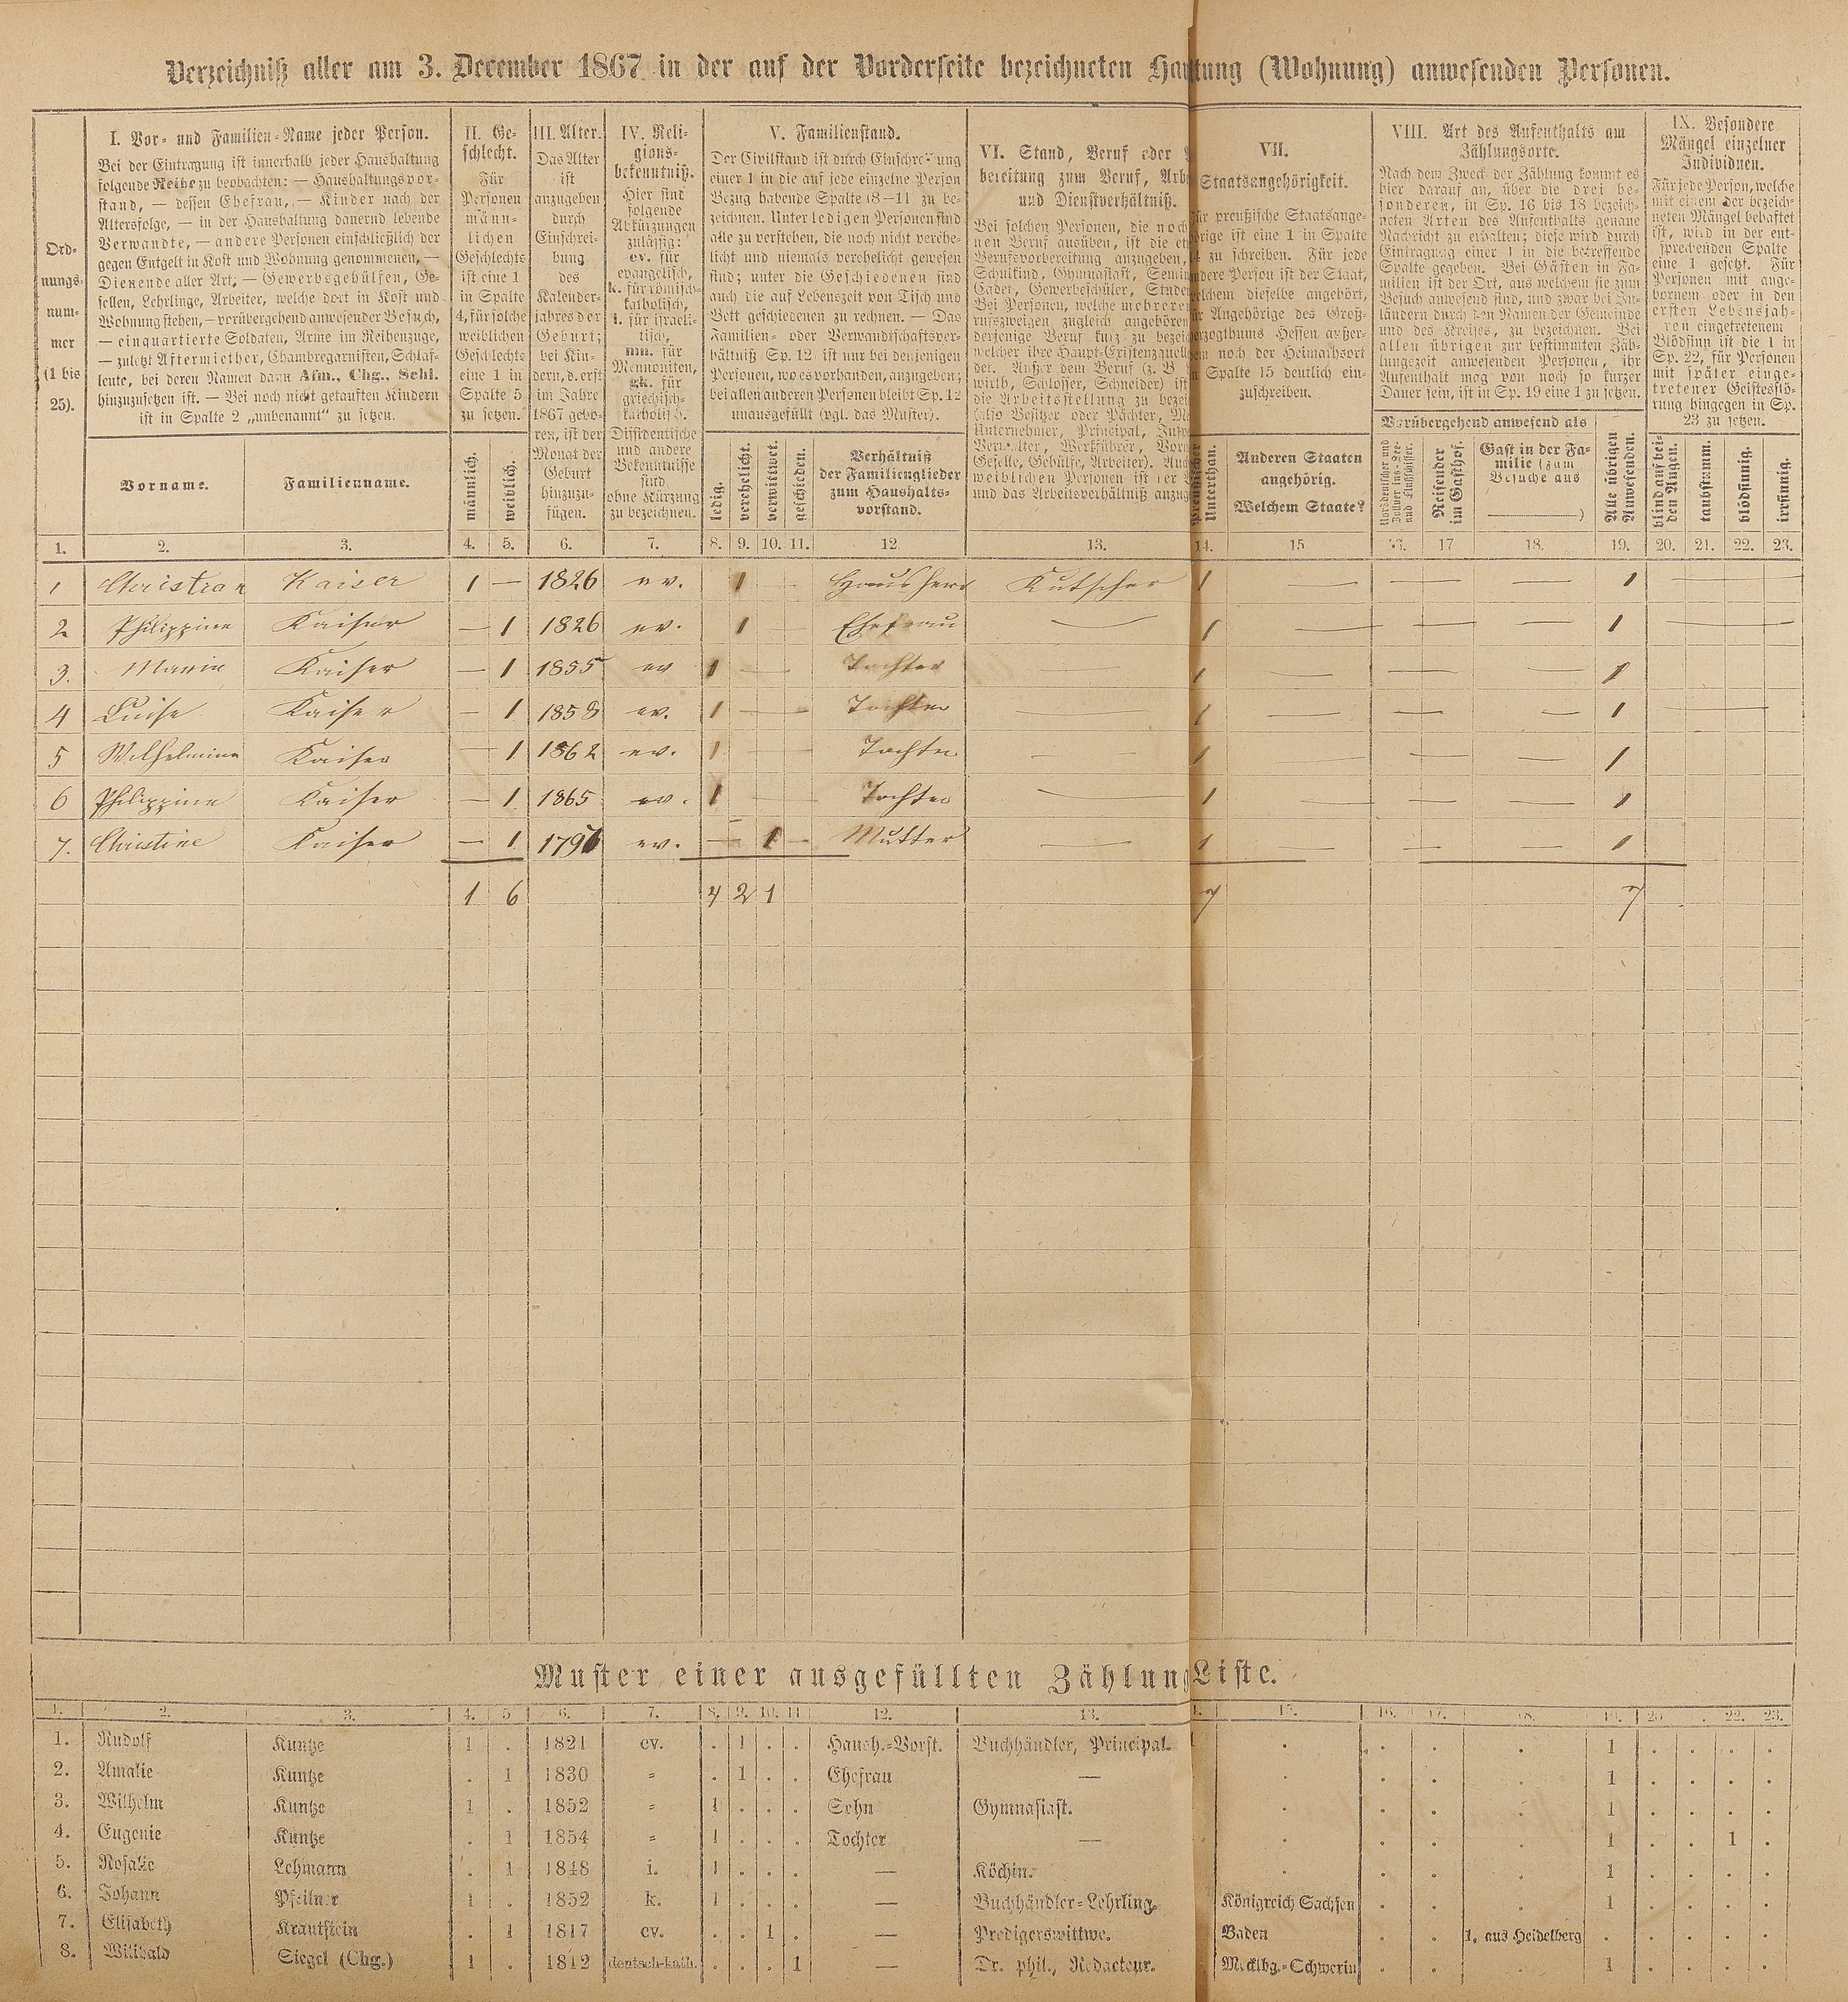 Verzeichniß aller am 3. December 1867 in der auf der Vorderseite bezeichneten Haltung (Wohnung) anwesenden Personen.
Ord-
nungs-
num-
mer
(1 bis
25).
I. Vor- und Familien-Name jeder Person.
Bei der Eintragung ist innerhalb jeder Haushaltung
folgende Reihe zu beobachten: — Haushaltungsvor-
stand, — dessen Ehefrau, — Kinder nach der
Altersfolge, — in der Haushaltung dauernd lebende
Verwandte, — andere Personen einschließlich der
gegen Entgelt in Kost und Wohnung genommenen, —
Dienende aller Art, — Gewerbsgehülfen, Ge-
sellen, Lehrlinge, Arbeiter, welche dort in Kost und
Wohnung stehen, — vorübergehend anwesender Besuch,
— einquartierte Soldaten, Arme im Reihenzuge,
— zuletzt Aftermiether, Chambregarnisten, Schlaf-
leute, bei deren Namen dann Afm., Chg., Schl.
hinzuzusetzen ist. — Bei noch nicht getauften Kindern
ist in Spalte 2 „unbenannt“ zu setzen.
Vorname.
Familienname.
II. Ge-
schlecht.
Für
Personen
männ-
lichen
Geschlechts
ist eine 1
in Spalte
4, für solche
weiblichen
Geschlechts
eine 1 in
Spalte 5
zu setzen.
männlich.
weiblich.
III. Alter.
Das Alter
ist
anzugeben
durch
Einschrei-
bung
des
Kalender-
jahres der
Geburt;
bei Kin-
dern, d. erst
im Jahre
1867 gebo-
ren, ist der
Monat der
Geburt
hinzuzu-
fügen.
IV. Reli-
gions-
bekenntniß.
Hier sind
folgende
Abkürzungen
zulässig:
ev. für
evangelisch,
k. für römisch-
katholisch,
i. für israeli-
tisch,
mn. für
Mennoniten,
gk. für
griechisch-
katholisch.
Dissidentische
und andere
Bekenntnisse
sind
ohne Kürzung
zu bezeichnen.
V. Familienstand.
Der Civilstand ist durch Einschreibung
einer 1 in die auf jede einzelne Person
Bezug habende Spalte (8—11) zu be-
zeichnen. Unter ledigen Personen sind
alle zu verstehen, die noch nicht verehe-
licht und niemals verehelicht gewesen
sind; unter die Geschiedenen sind
auch die auf Lebenszeit von Tisch und
Bett geschiedenen zu rechnen. — Das
Familien- oder Verwandtschaftsver-
hältniß Sp. 12 ist nur bei denjenigen
Personen, wo es vorhanden, anzugeben;
bei allen anderen Personen bleibt Sp. 12
unausgefüllt (vgl. das Muster).
ledig.
verehelicht.
verwittwet.
geschieden.
Verhältniß
der Familienglieder
zum Haushalts-
vorstand.
VI. Stand, Beruf oder
bereitung zum Beruf, Arb
und Dienstverhältniß.
Bei solchen Personen, die noch
nen Beruf ausüben, ist die et
Berufsvorbereitung anzugeben,
Schulkind, Gymnasiast, Semin
Cadet, Gewerbeschüler, Studen
Bei Personen, welche mehreren
rufszweigen zugleich angehören
derjenige Beruf kurz zu bezeich
welcher ihre Haupt-Existenzquelle
det. Außer dem Beruf (z. B.
wirth, Schlosser, Schneider) ist
die Arbeitsstellung zu bezei
(also Besitzer oder Pächter, Me
Unternehmer, Principal, Inspe
Verwalter, Werkführer, Vorm
Geselle, Gehülfe, Arbeiter). Auch
weiblichen Personen ist der B
und das Arbeitsverhältniß anzug
VII.
Staatsangehörigkeit.
Für preußische Staatsange-
hörige ist eine 1 in Spalte
14 zu schreiben. Für jede
andere Person ist der Staat,
welchem dieselbe angehört,
für Angehörige des Groß-
herzogthums Hessen außer-
dem noch der Heimathsort
in Spalte 15 deutlich ein-
zuschreiben.
Preußischer
Unterthan.
Anderen Staaten
angehörig.
Welchem Staate?
VIII. Art des Aufenthalts am
Zählungsorte.
Nach dem Zweck der Zählung kommt es
hier darauf an, über die drei be-
sonderen, in Sp. 16 bis 18 bezeich-
neten Arten des Aufenthalts genaue
Nachricht zu erhalten; diese wird durch
Eintragung einer 1 in die betreffende
Spalte gegeben. Bei Gästen in Fa-
milien ist der Ort, aus welchem sie zum
Besuch anwesend sind, und zwar bei In-
ländern durch den Namen der Gemeinde
und des Kreises, zu bezeichnen. Bei
allen übrigen zur bestimmten Zäh-
lungszeit anwesenden Personen, ihr
Aufenthalt mag von noch so kurzer
Dauer sein, ist in Sp. 19 eine 1 zu setzen.
Vorübergehend anwesend als
Norddeutscher und
Zollver eins-See-
und Flußschiffer.
Reisender
im Gasthof.
Gast in der Fa-
milie (zum
Besuche aus
)
Alle übrigen
Anwesenden.
IX. Besondere
Mängel einzelner
Individuen.
Für jede Person, welche
mit einem der bezeich-
neten Mängel behaftet
ist, wird in der ent-
sprechenden Spalte
eine 1 gesetzt. Für
Personen mit ange-
bornem oder in den
ersten Lebensjah-
ren eingetretenem
Blödsinn ist die 1 in
Sp. 22, für Personen
mit später einge-
tretener Geistesstö-
rung hingegen in Sp.
23 zu setzen.
blind auf bei-
den Augen.
taubstumm.
blödsinnig.
irrsinnig.
1. 2. 3. 4. 5. 6. 7. 8. 9. 10. 11. 12. 13. 14. 15 16. 17 18. 19. 20. 21. 22. 23.
1 Christian Kaiser 1 — 1826 ev. 1 — Hausherr Kutscher 1 — — — 1 —
2 Philippine Kaiser — 1 1826 ev. 1 — Ehefrau — 1 — — — 1 —
3. Marie Kaiser — 1 1855 ev 1 — — Tochter — 1 — — — 1
4 Luise Kaiser — 1 1858 ev. 1 — — Tochter — 1 — — — 1 —
5 Wilhelmine Kaiser — 1 1862 ev. 1 — — Tochter — 1 — — — 1
6 Philippine Kaiser — 1 1865 ev. 1 — — Tochter — 1 — — — 1
7. Christine Kaiser — 1 1796 ev. — 1 — Mutter — 1 — — — 1
1 6 4 2 1 7 7
Muster einer ausgefüllten Zählungs Liste.
1. 2. 3. 4. 5 6. 7. 8. 9. 10. 11 12. 13. 15. 16. 17. 18. 19. 20 22. 23.
1. Rudolf Kuntze 1 . 1821 ev. . 1 . . Haush.-Vorst. Buchhändler, Principal. . . . . 1 . . . .
2. Amalie Kuntze . 1 1830 = . 1 . . Ehefrau — . . . . 1 . . . .
3. Wilhelm Kuntze 1 . 1852 = 1 . . . Sohn Gymnasiast. . . . . 1 . . . .
4. Eugenie Kuntze . 1 1854 = 1 . . . Tochter — . . . . 1 . . 1 .
5. Rosalie Lehmann . 1 1848 i. 1 . . . — Köchin. . . . . 1 . . . .
6. Johann Pfeilner 1 . 1852 k. 1 . . . — Buchhändler-Lehrling. Königreich Sachsen . . . 1 . . . .
7. Elisabeth Krautstein . 1 1817 ev. . . 1 . — Predigerswittwe. Baden . . 1, aus Heidelberg . . . . .
8. Willibald Siegel (Chg.) 1 . 1812 deutsch-kath. . . . 1 — Dr. phil., Redacteur. Mecklbg.-Schwerin . . . 1 . . . .